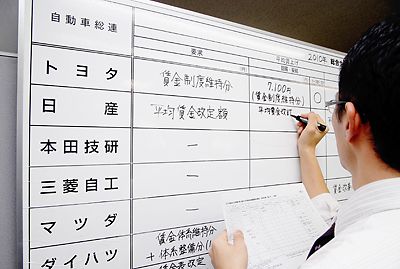 自動車総連
平均賃上げ
2010年
要求
回答・妥結
トヨタ
賃金制度維持分
7,100円
(賃金制度維持分)
○
日産
平均賃金改定額
平均賃金改定
本田技研
ー
ー
三菱自工
ー
マツダ
賃金体系維持分
ダイハツ
+体系整備分(1
賃金改定